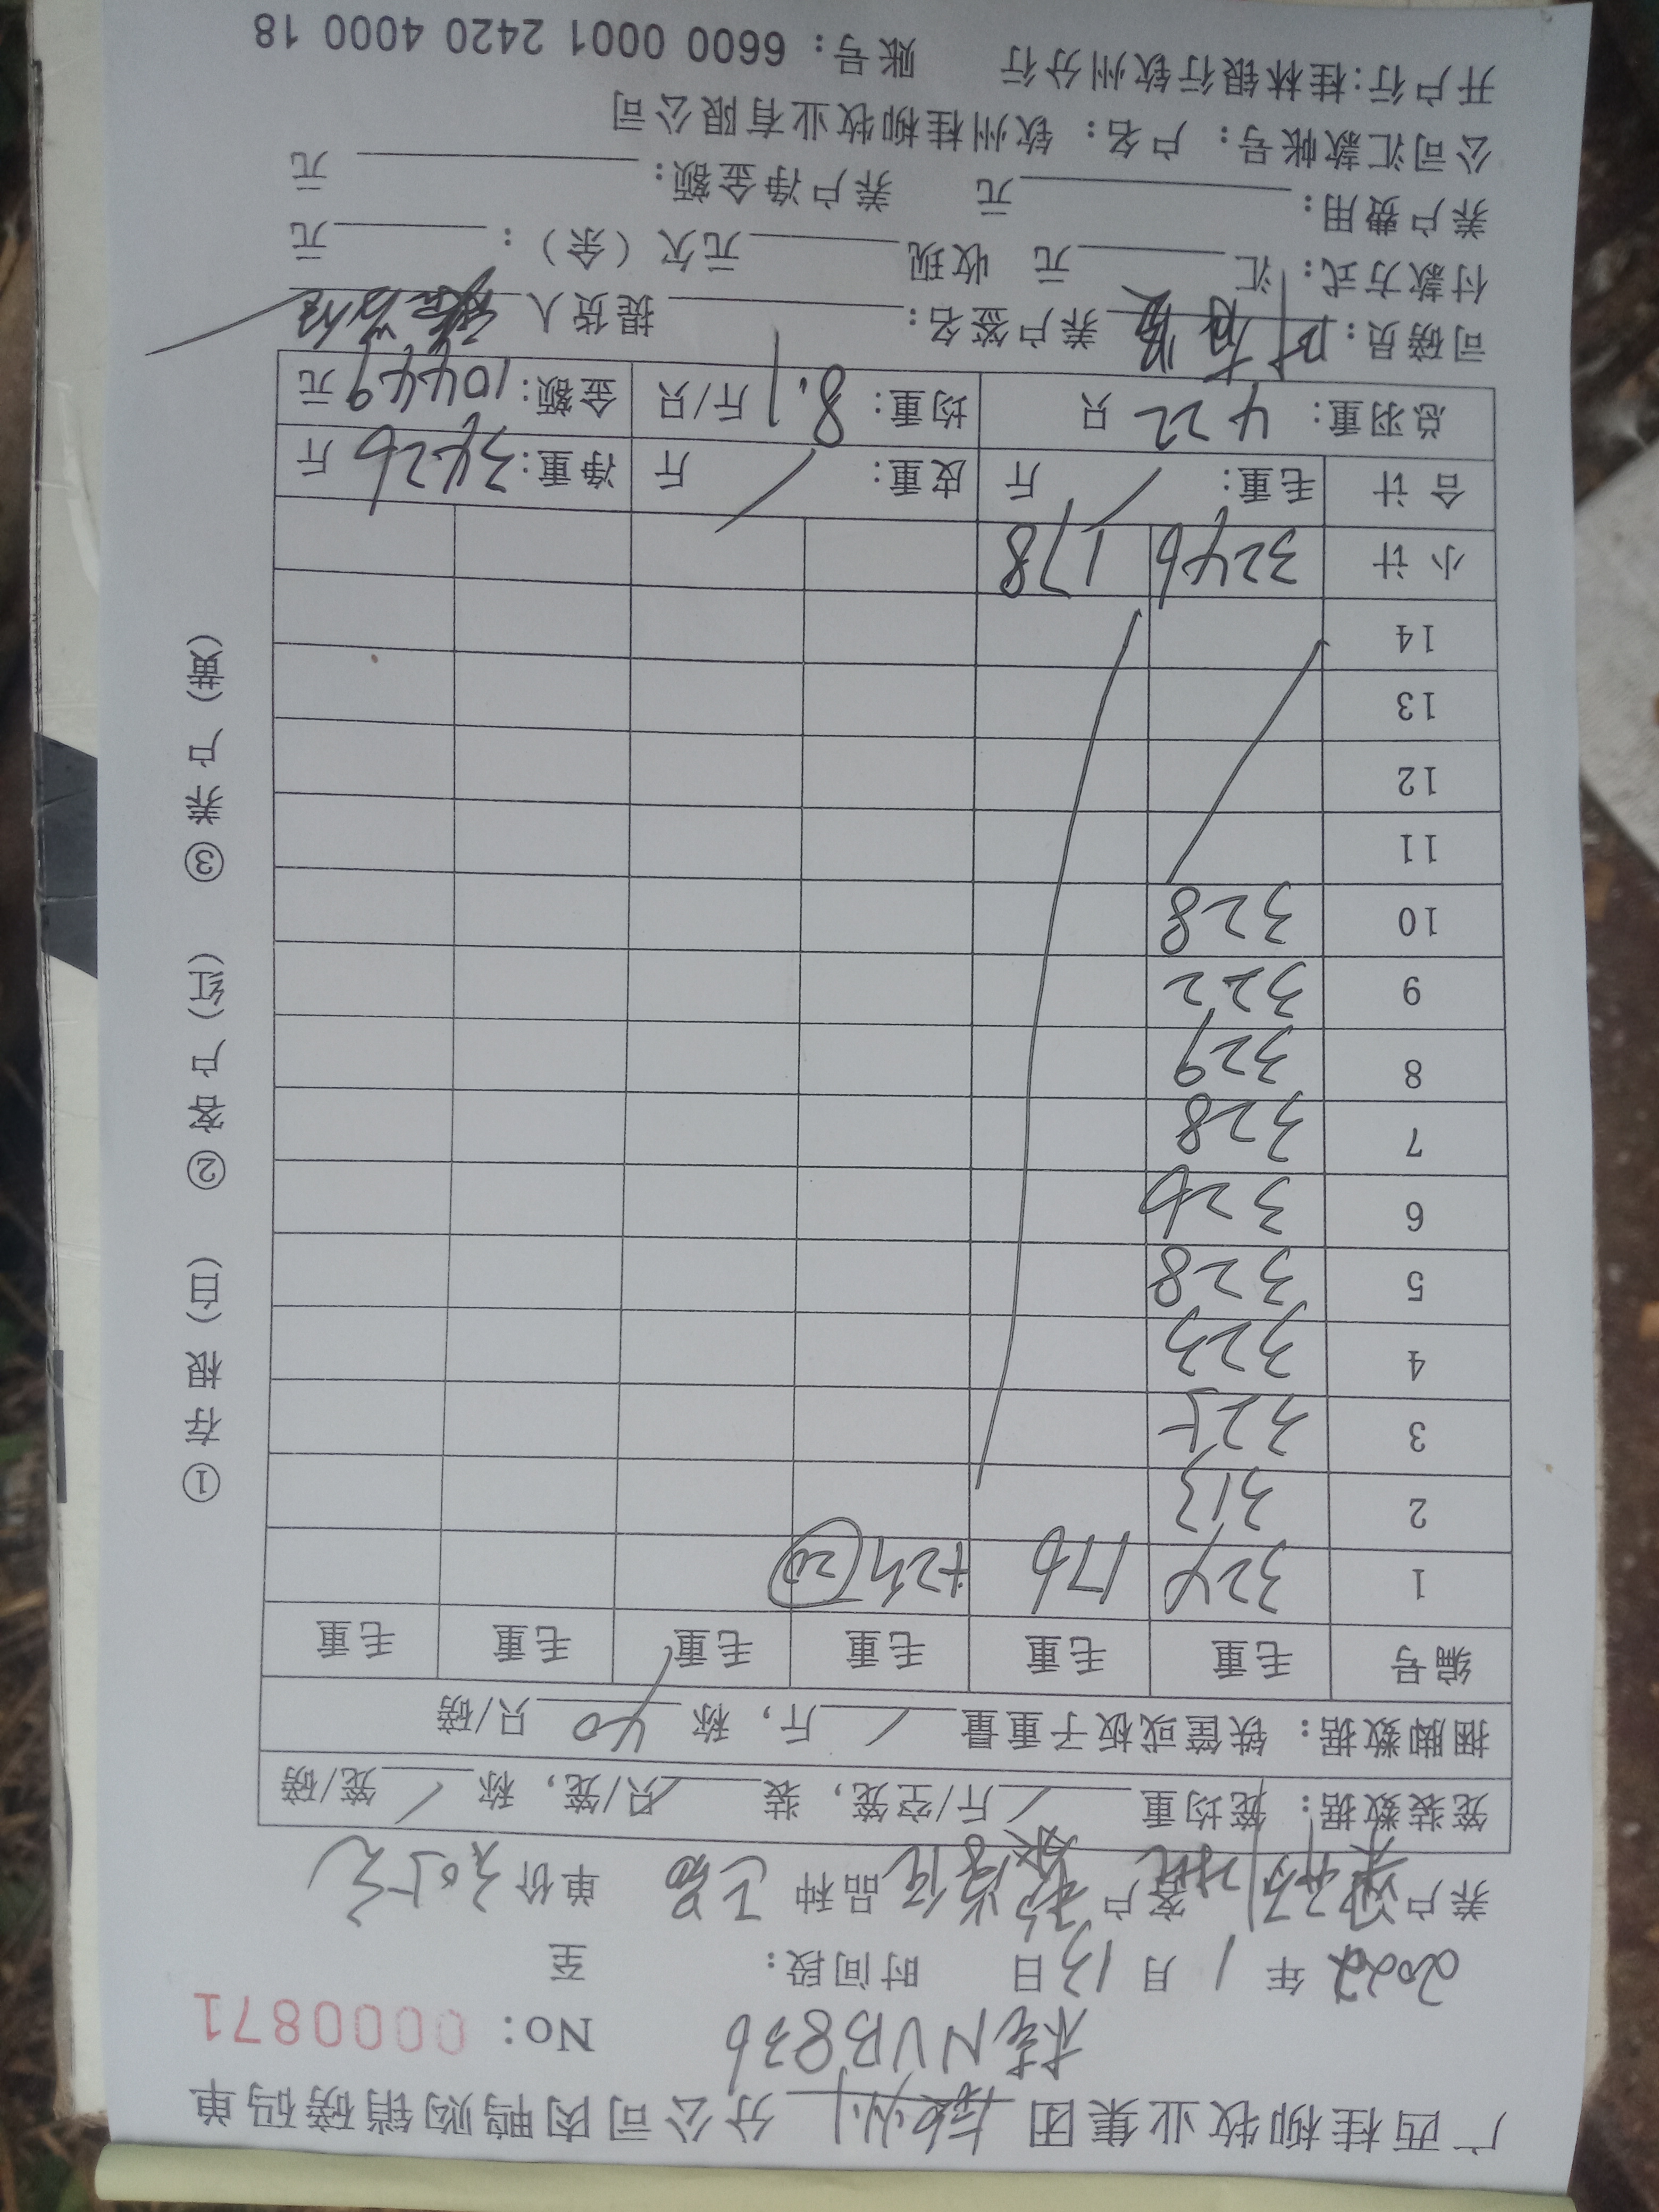 广西桂柳牧业集团 钦州 分公司肉鸭购销磅码单
桂NVB836
No: 0000871
2022 年 1 月 13 日 时间段: 至
养户 客户 品种 单价 3.05元
笼装数据: 笼均重 / 斤/空笼, 装 / 只/笼, 称 / 笼/磅
捆脚数据: 铁筐或板子重量 / 斤, 称 40 只/磅
编号 毛重 毛重 毛重 毛重 毛重 毛重
1 324 176
2 313
3 325
4 323
5 328
6 326
7 328
8 329
9 322
10 328
11
12
13
14
小计 3246 178
合计 毛重: / 斤 皮重: / 斤 净重: 3426 斤
总羽重: 422 只 均重: 8.1 斤/只 金额: 10449 元
司磅员: 养户签名: 提货人
付款方式: 汇 元 收现 元欠(余): 元
养户费用: 元 养户净金额: 元
公司汇款帐号: 户名: 钦州桂柳牧业有限公司
开户行:桂林银行钦州分行 账号: 6600 0001 2420 4000 18
①存根(白) ②客户(红) ③养户(黄)